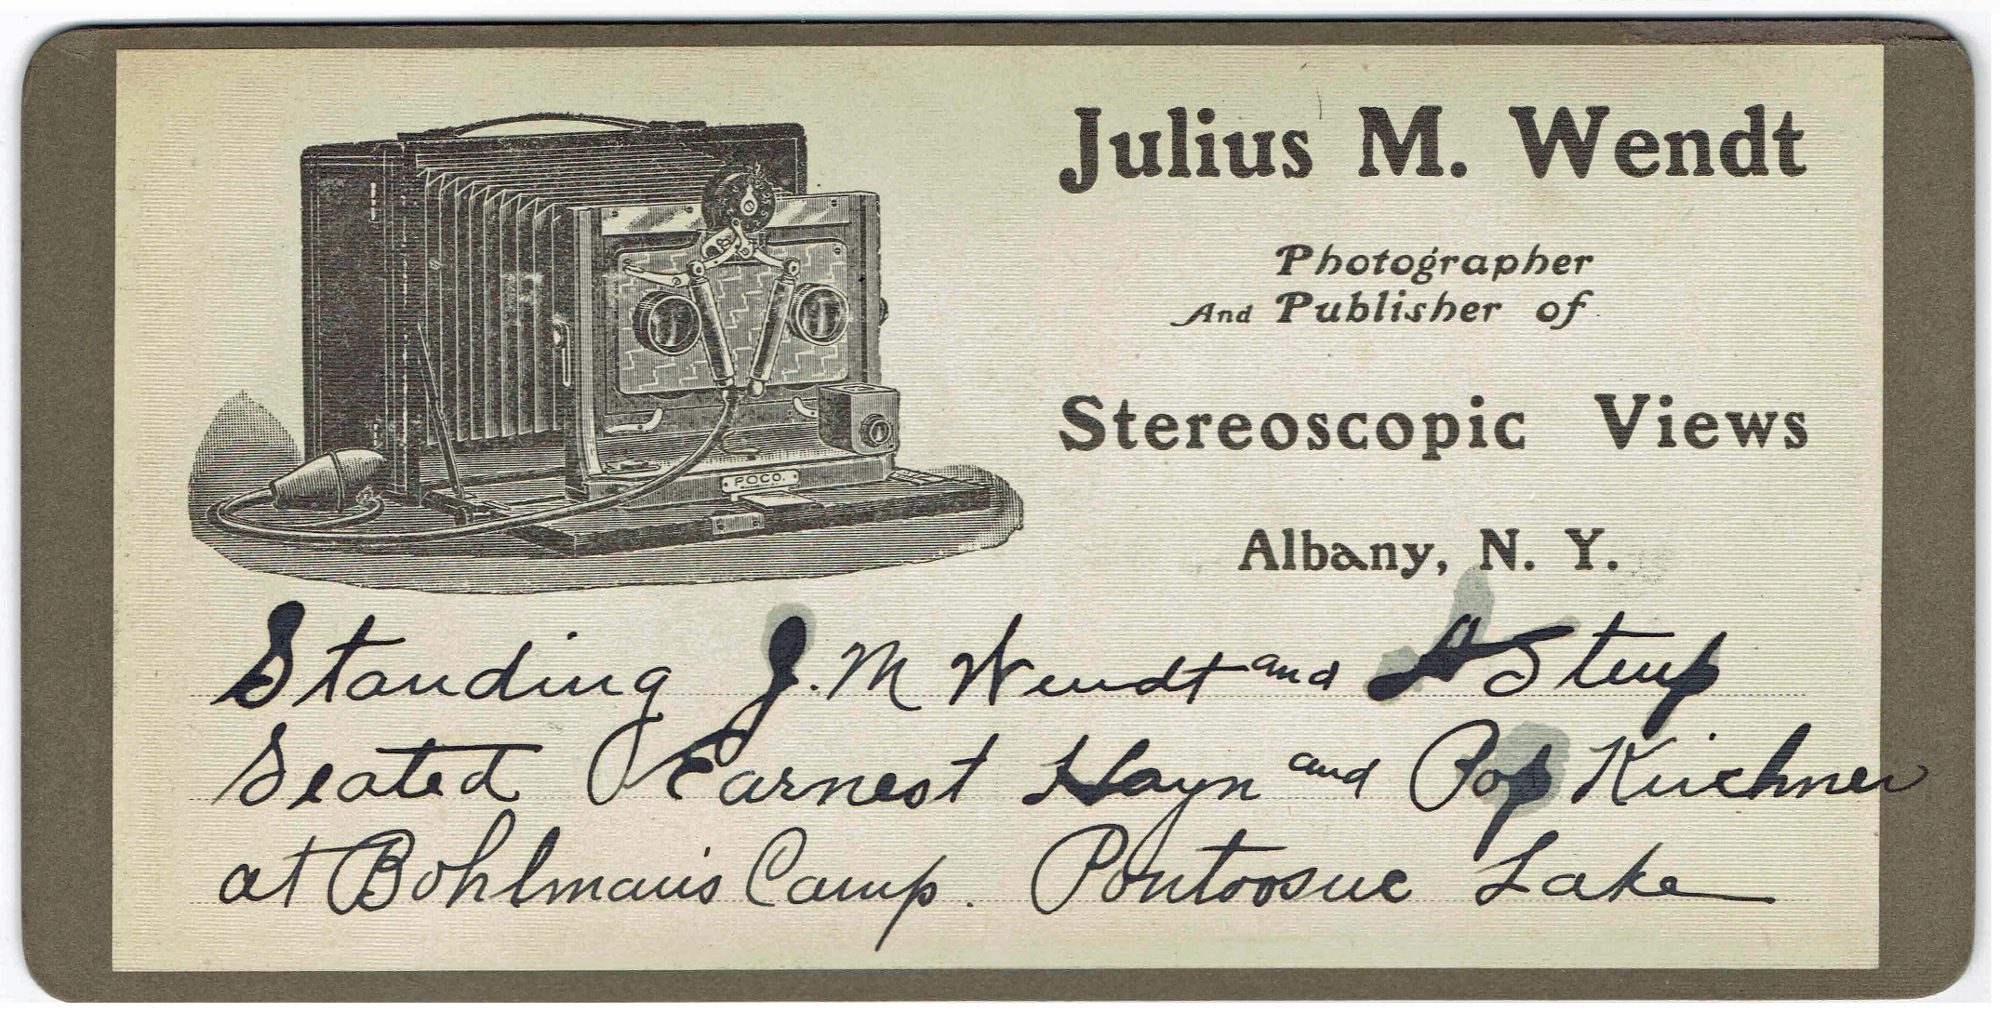 Julius M. Wendt
Photographer
And Publisher of
Stereoscopic Views
Albany, N. Y.
POCO.
Standing J. M Wendt and A Steup
Seated Earnest Hayn and Pop Kirchner
at Bohlman's Camp. Pontoosuc Lake